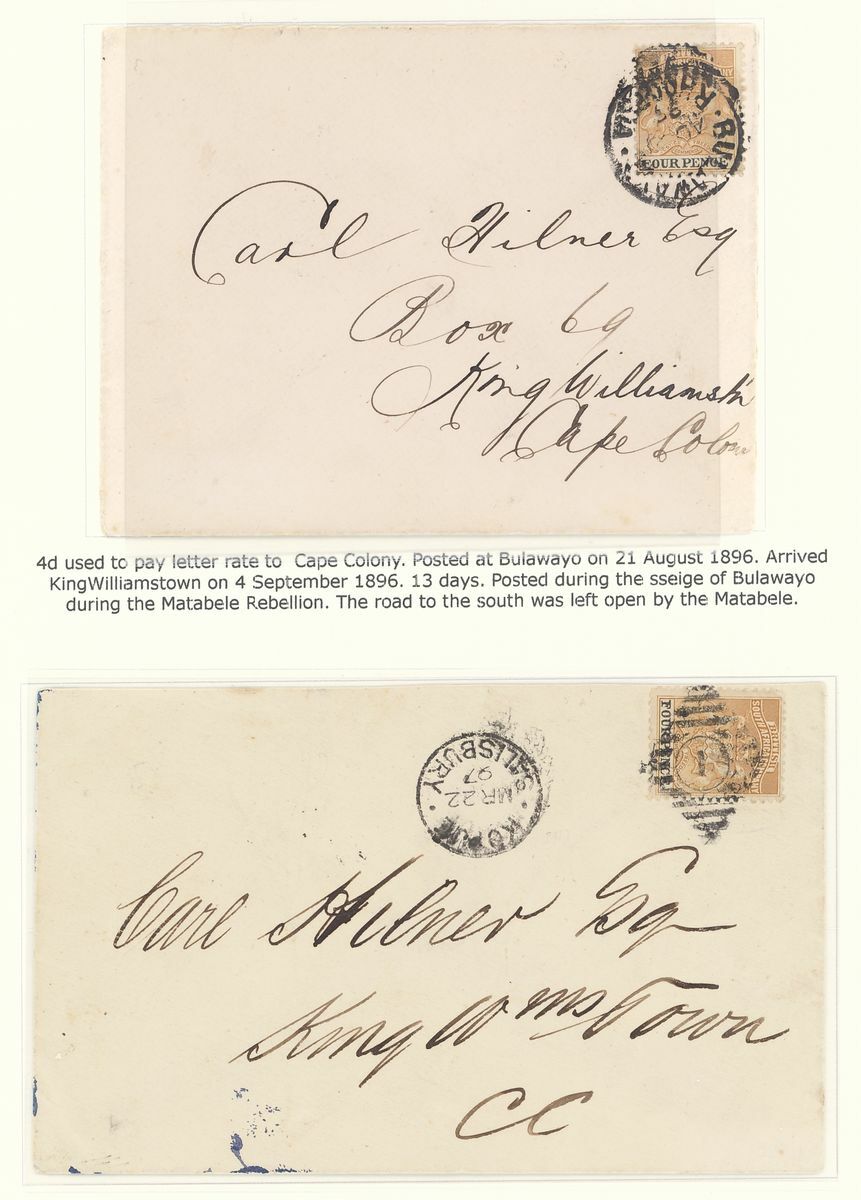 BRITISH
SOUTH AFRICA COMPANY
FOUR PENCE
BULAWAYO
AU 21
96
Carl Hilner Esq
Box 69
King Williamstn
Cape Colony
4d used to pay letter rate to Cape Colony. Posted at Bulawayo on 21 August 1896. Arrived
KingWilliamstown on 4 September 1896. 13 days. Posted during the sseige of Bulawayo
during the Matabele Rebellion. The road to the south was left open by the Matabele.
BRITISH
SOUTH AFRICA COMPANY
FOUR PENCE
SALISBURY
MR 22
97
Carl Hilner Esq
King Wms Town
CC